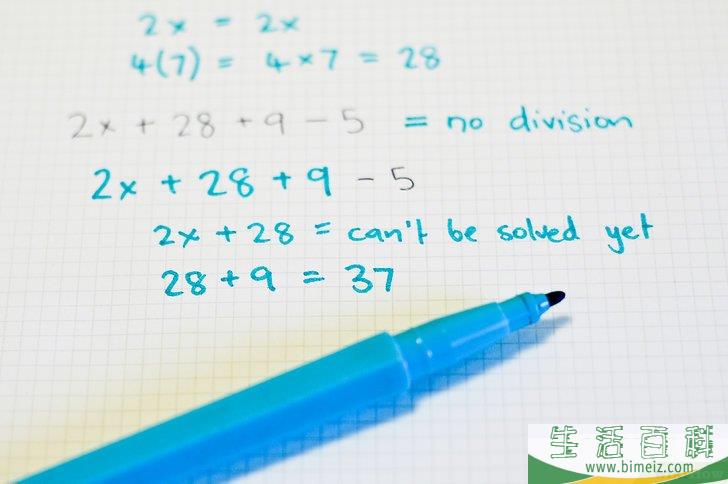 2x = 2x
4(7) = 4×7 = 28
2x + 28 + 9 - 5 = no division
2x + 28 + 9 - 5
2x + 28 = can't be solved yet
28 + 9 = 37
生活百科
www.bimeiz.com